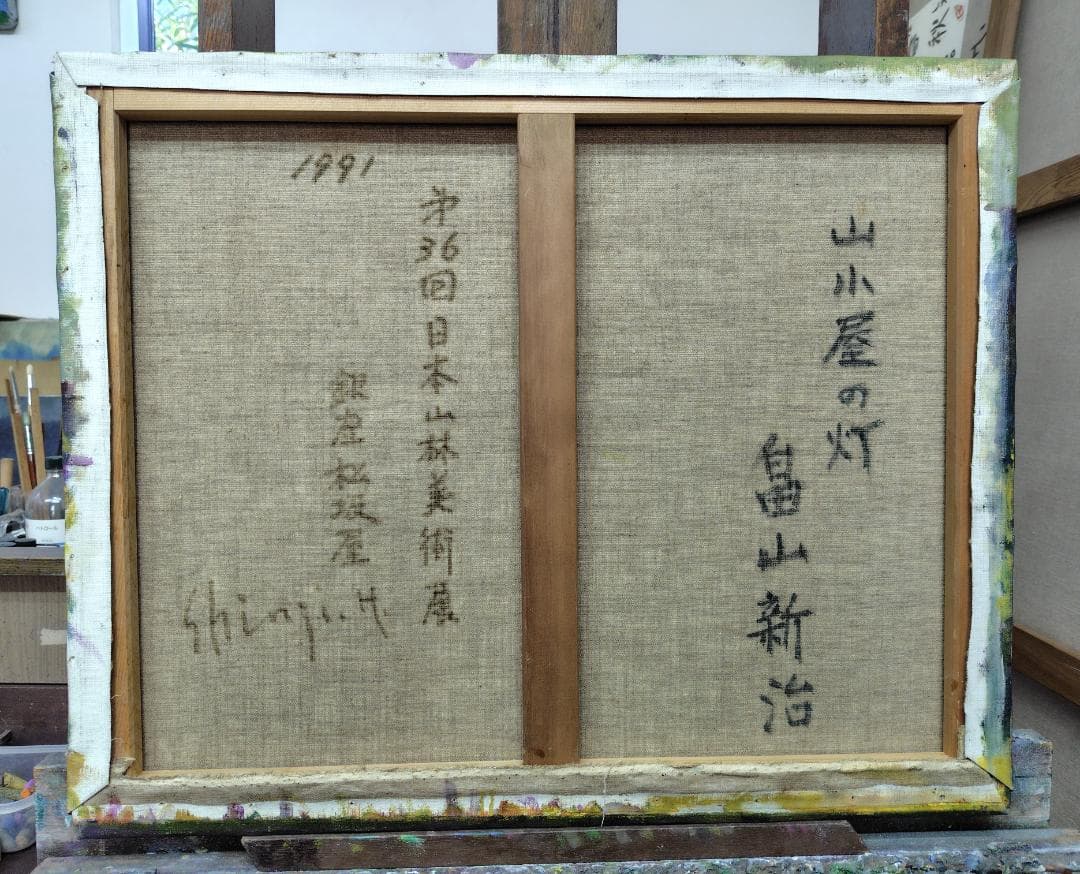 山小屋の灯
畠山新治
1991
第36回日本山林美術展
銀座松坂屋
Shinji.H